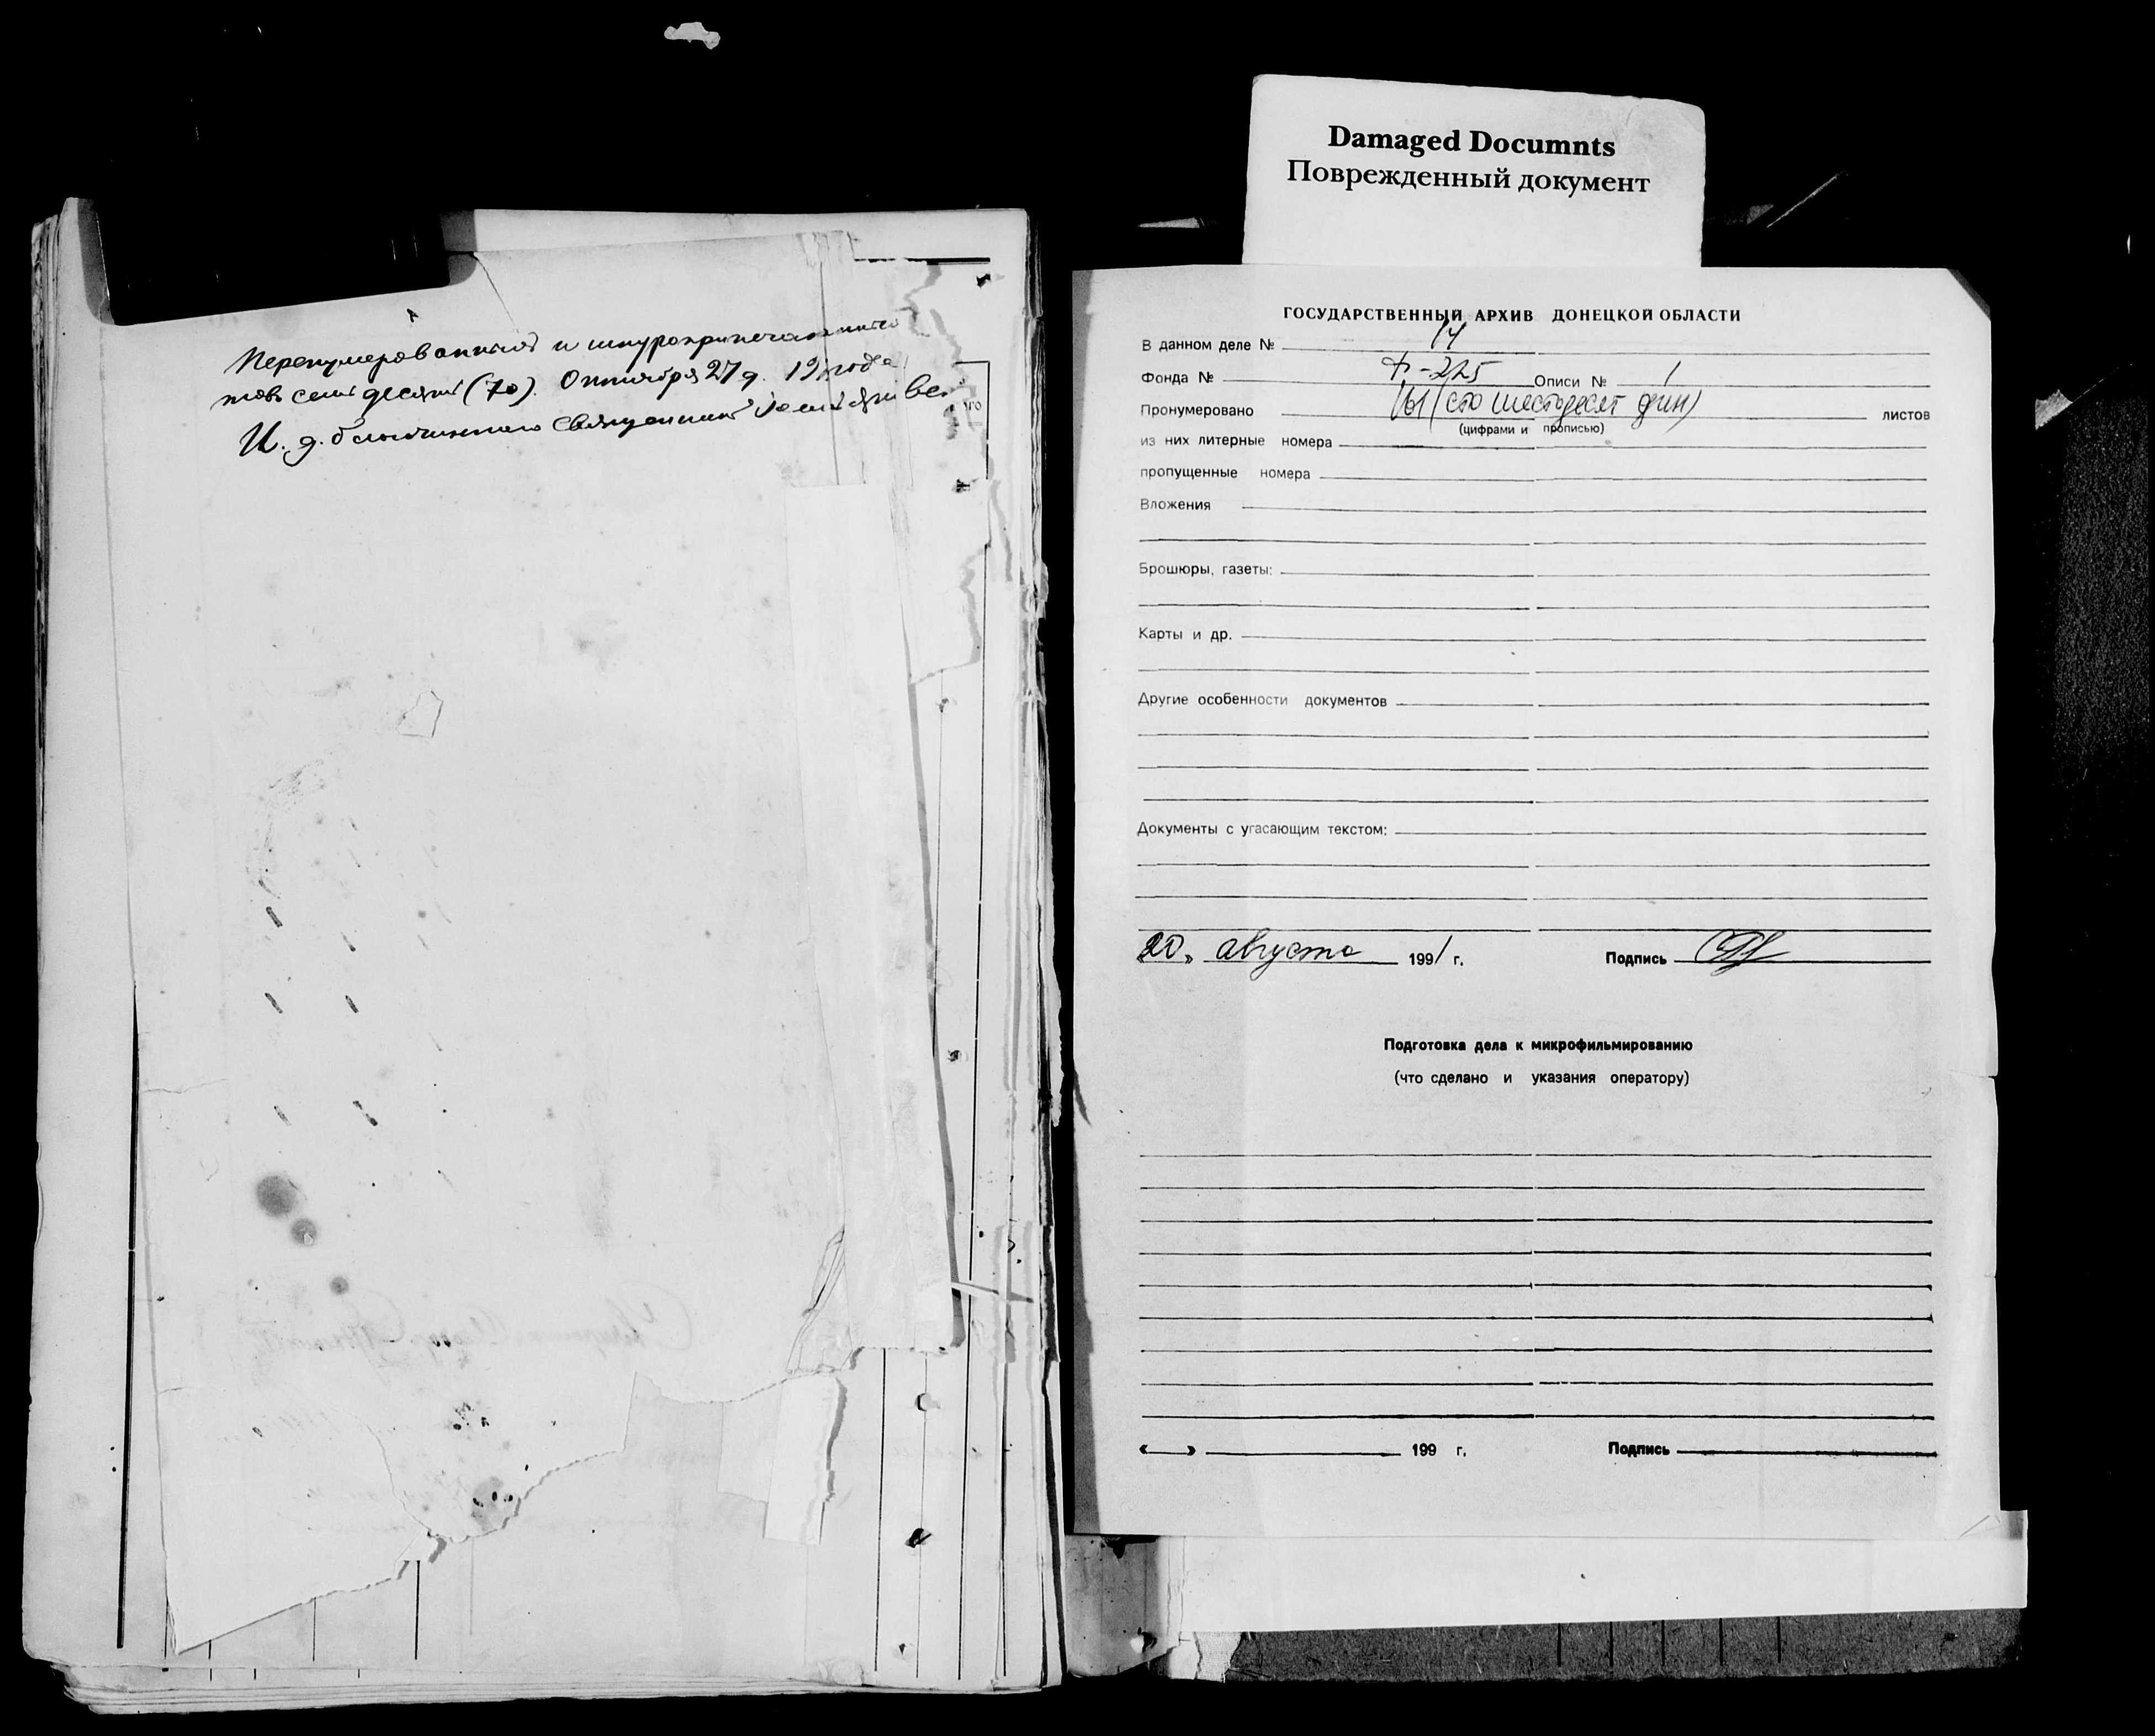 Перенумерованныхъ и шнуроприпечатанныхъ
товъ семьдесятъ (70). Октября 27 д. 19 года
И. д. благочиннаго Священникъ
Damaged Documnts
Поврежденный документ
ГОСУДАРСТВЕННЫЙ АРХИВ ДОНЕЦКОЙ ОБЛАСТИ
В данном деле № 14
Фонда № Ф-225 Описи № 1
Пронумеровано 161 (сто шестьдесят один) листов
(цифрами и прописью)
из них литерные номера
пропущенные номера
Вложения
Брошюры, газеты:
Карты и др.
Другие особенности документов
Документы с угасающим текстом:
20 » августа 1991 г. Подпись
Подготовка дела к микрофильмированию
(что сделано и указания оператору)
« » 199 г. Подпись